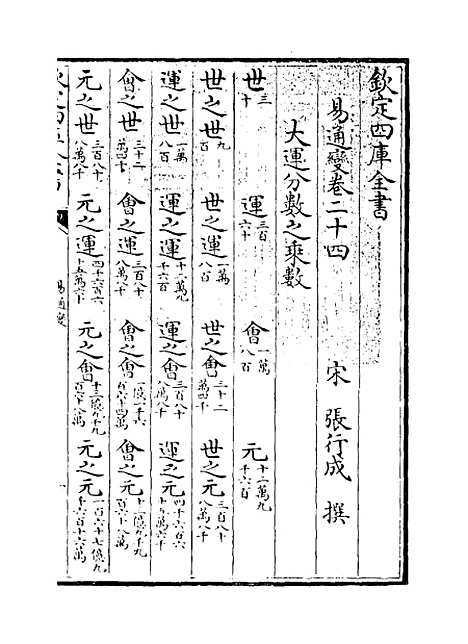 欽定四庫全書
易通變卷二十四
宋 張行成 撰
大運分數之乘數
世三十 運三百六十 會一萬八百 元十二萬九千六百
世之世九百 世之運一萬八百 世之會三十二萬四千 世之元三百八十八萬八千
運之世一萬八百 運之運十二萬九千六百 運之會三百八十八萬八千 運之元四千六百六十五萬六千
會之世三十二萬四千 會之運三百八十八萬八千 會之會一億一千六百六十四萬 會之元十三億九千九百六十八萬
元之世三百八十八萬八千 元之運四千六百六十五萬六千 元之會十三億九千九百六十八萬 元之元一百六十七億九千六百一十六萬
易通變